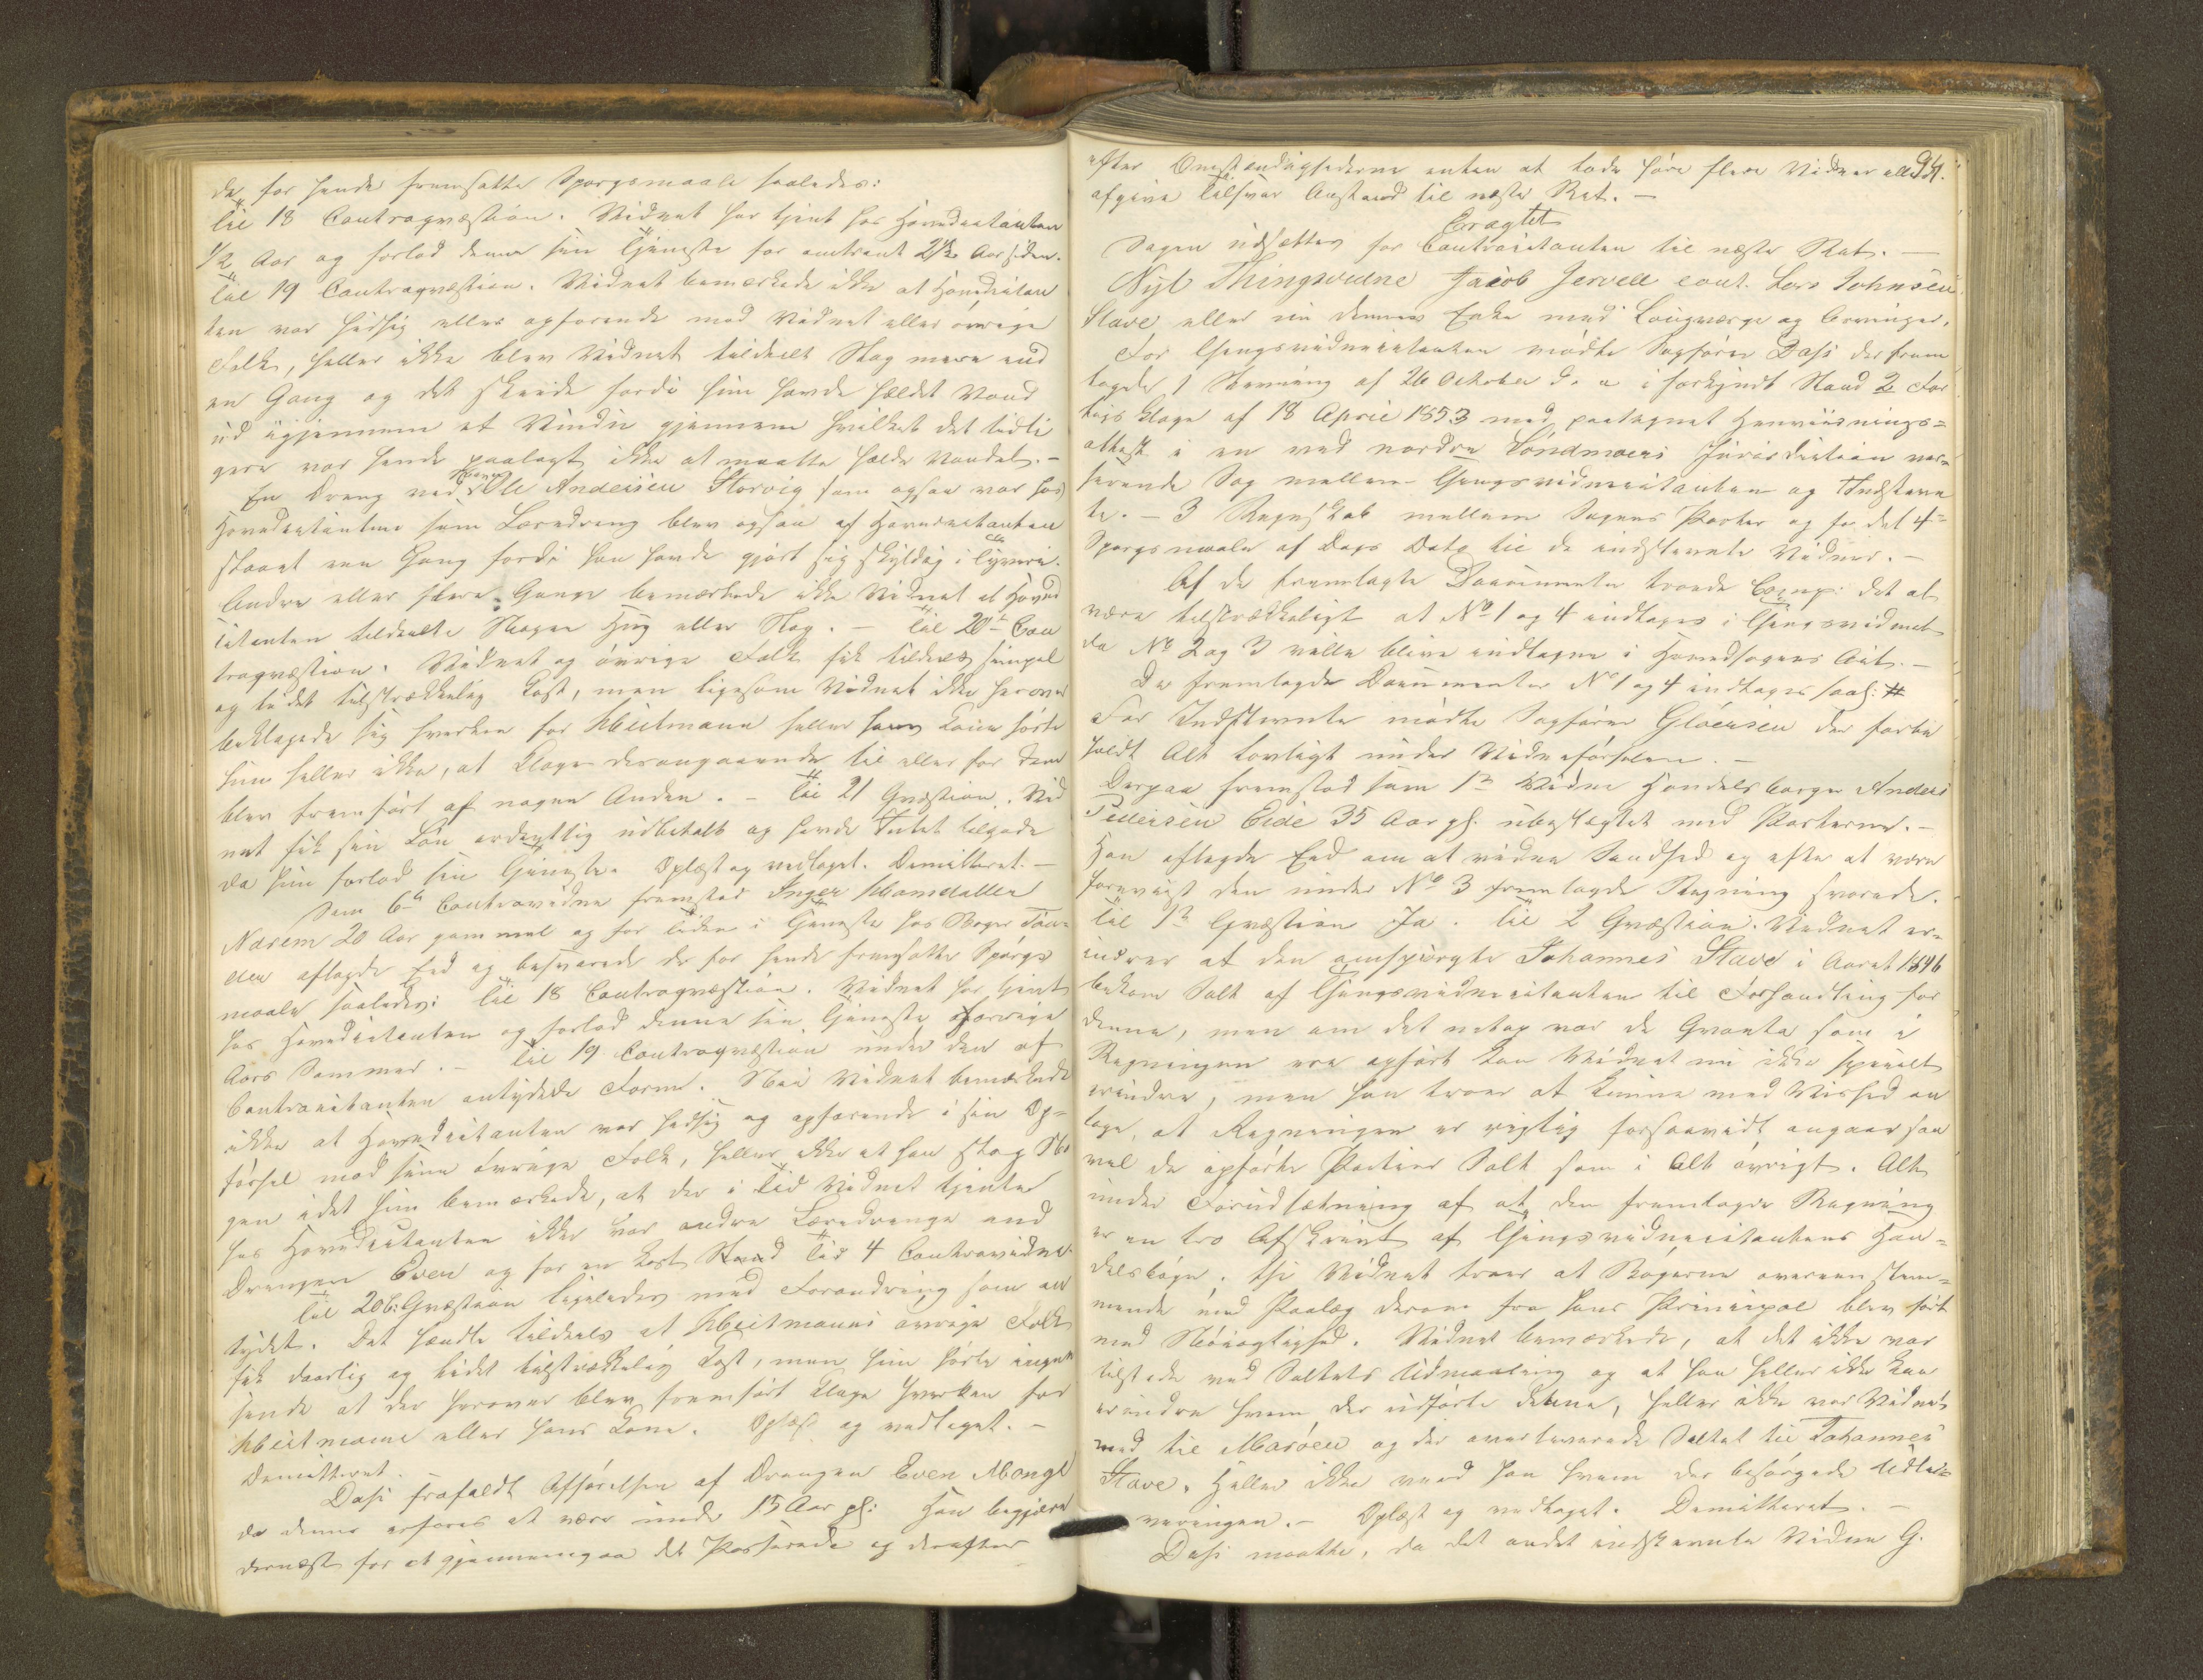 de for hende fremsatte Spørgsmaale saaledes:
Til 18 Contraqvæstion. Vidnet har tjent hos Hovedcitanten
1/2 Aar og forlod denne sin Tjeneste for omtrent 2 1/2 Aar siden.
Til 19 Contraqvæstion. Vidnet bemærkede ikke at Hovedcitan
ten var hidsig eller opfarende mod Vidnet eller øvrige
Folk, heller ikke blev Vidnet tildeelt Slag mere end
en Gang og det skeede fordi hun havde hældet Vand
ud igjennem et Vindu gjennem hvilket det tidli
gere var hende paalagt ikke at maatte hælde Vandet. -
En Dreng ved Navn Ole Andersen Storvig som ogsaa var hos
Hovedcitanten som Læredreng blev ogsaa af Hovedcitanten
slaaet een Gang fordi han havde gjort sig skyldig i Tyveri.
Andre eller flere Gange bemærkede ikke Vidnet at Hoved
citanten tildeelte Nogen Hug eller Slag. - Til 20de Con
traqvæstion. Vidnet og øvrige Folk fik tildeels simpel
og tildeels utilstrækkelig Kost, men ligesom Vidnet ikke herover
beklagede sig hverken for Weitmann heller hans Kone hørte
hun heller ikke, at Klage desangaaende til eller for dem
blev fremført af nogen Anden. - Til 21 Qvæstion. Vid
net fik sin Løn ordentlig udbetalt og havde Intet tilgode
da hun forlod sin Tjeneste. Oplæst og vedtaget. Demitteret. -
Som 6te Contravidne fremstod Inger
Narem 20 Aar gammel og for Tiden i Tjeneste hos
aflagde Eed og besvarede de for hende fremsatte Spørgs
maale saaledes: Til 18 Contraqvæstion. Vidnet har tjent
hos Hovedcitanten og forlod denne sin Tjeneste forrige
Aars Sommer. - Til 19 Contraqvæstion under den af
Contracitanten antydede Form. Nei Vidnet bemærkede
ikke at Hovedcitanten var hidsig og opfarende i sin Op=
førsel mod sine øvrige Folk, heller ikke at han slog No
gen idet hun bemærkede, at der i Tid Vidnet tjente
hos Hovedcitanten ikke var andre Læredrenge end
Drengen Even og for en kort Stund Tid 4 Contravidne.
Til 20de Qvæstion ligeledes med Forandring som an
tydet. Det hændte tildeels at Weitmanns øvrige Folk
fik daarlig og lidet tilstrækkelig Kost, men hun hørte ingen
sinde at der herover blev fremført Klage hverken for
Weitmann eller hans Kone. Oplæst og vedtaget. -
Demitteret.
Dahl frafaldt Afhørelsen af Drengen Even
da denne erfares at være under 15 Aar gl: Han begjærede
dernæst for at gjennemgaae det Passerede og derefter
94.
efter Omstændighederne enten at lade føre flere Vidner eller
afgive Tilsvar Anstand til næste Ret. -
Eragtet
Sagen udsættes for Contracitanten til næste Ret. -
Nyt Thingsvidne Jacob Jervell cont. Lars Johnsen
Stave eller nu dennes Enke med Laugværge og Arvinger.
For Thingsvidnecitanten mødte Sagfører Dahl der frem
lagde 1 Stævning af 26 October d. a. i forkyndt Stand 2 For
ligs Klage af 18 April 1853 med paategnet Henviisnings=
attest i en ved nordre Søndmøers Jurisdiction ver=
serende Sag mellem Thingsvidnecitanten og Indstævn
te. - 3 Regnskab mellem Sagens Parter og for det 4=
Spørgsmaale af Dags Dato til de indstævnte Vidner. -
Af de fremlagte Documenter troede Comp: det at
være tilstrækkeligt at No 1 og 4 indtages i Thingsvidnet
da No 2 og 3 ville blive indtagne i Hovedsagens Act. -
De fremlagde Documenter No 1 og 4 indtages saal: #
For Indstævnte mødte Sagfører Gløersen der forbe
holdt Alt lovligt under Vidneførselen. -
Derpaa fremstod som 1te Vidne Handelsborger Anders
Pedersen Eide 35 Aar gl. ubeslægtet med Parterne. -
Han aflagde Eed om at vidne Sandhed og efter at være
foreviist den under No 3 fremlagde Regning svarede.
Til 1te Qvæstion Ja. Til 2 Qvæstion. Vidnet er=
indrer at den omspurgte Johannes Stave i Aaret 1846
bekom Salt af Thingsvidnecitanten til Forhandling for
denne, men om det netop var de Qvanta som i
Regningen ere opført kan Vidnet nu ikke specielt
erindre, men han troer at kunne med Vished an
tage, at Regningen er rigtig forsaavidt angaar saa
vel de opførte Partier Salt som i Alt øvrigt. Alt
under Forudsætning af at den fremlagde Regning
er en tro Afskrivt af Thingsvidnecitantens Han=
delsbøger. Thi Vidnet troer at Bøgerne overeenstem=
mende med Paalæg derom fra hans Principal blev ført
med Nøiagtighed. Vidnet bemærkede, at det ikke var
tilstede ved Saltets Udmaaling og at han heller ikke kan
erindre hvem der udførte denne, heller ikke var Vidnet
med til Marøen og der overleverede Saltet til Johannes
Stave. Heller ikke veed han hvem der besørgede Udle=
veringen. - Oplæst og vedtaget. Demitteret. -
Dahl maatte, da det andet indstævnte Vidne G.